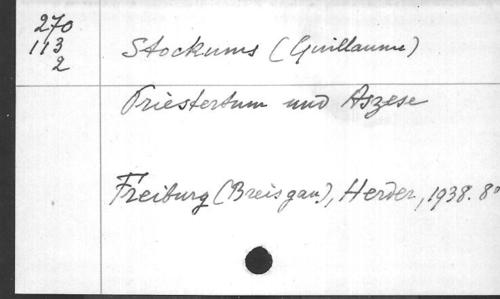 270
113
2
Stockums (Guillaume)
Priestertum und Aszese
Freiburg (Breisgau), Herder, 1938. 8°